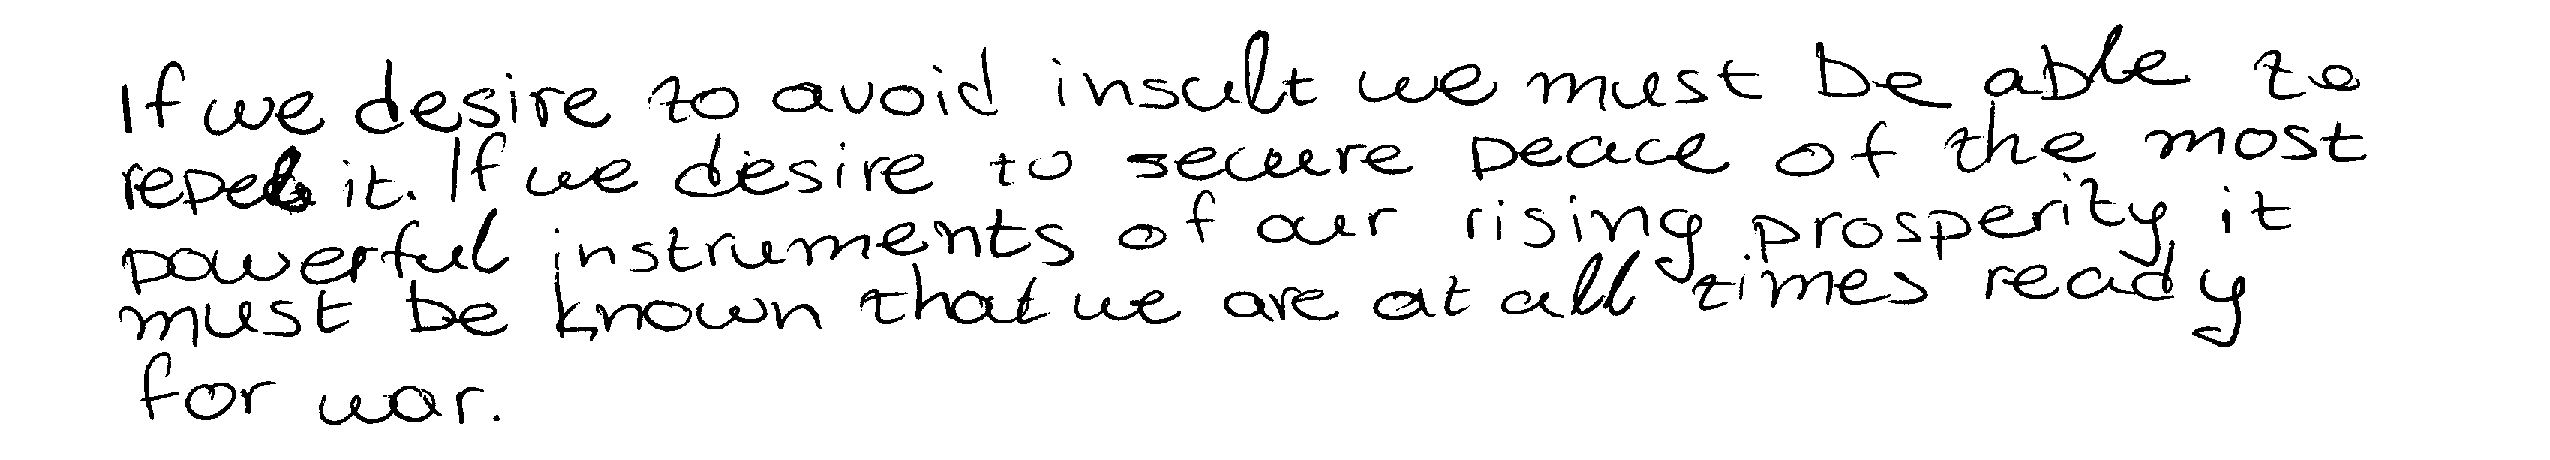 If we desire to avoid insult we must be able to
repel it. If we desire to secure peace of the most
powerful instruments of our rising prosperity it
must be known that we are at all times ready
for war.